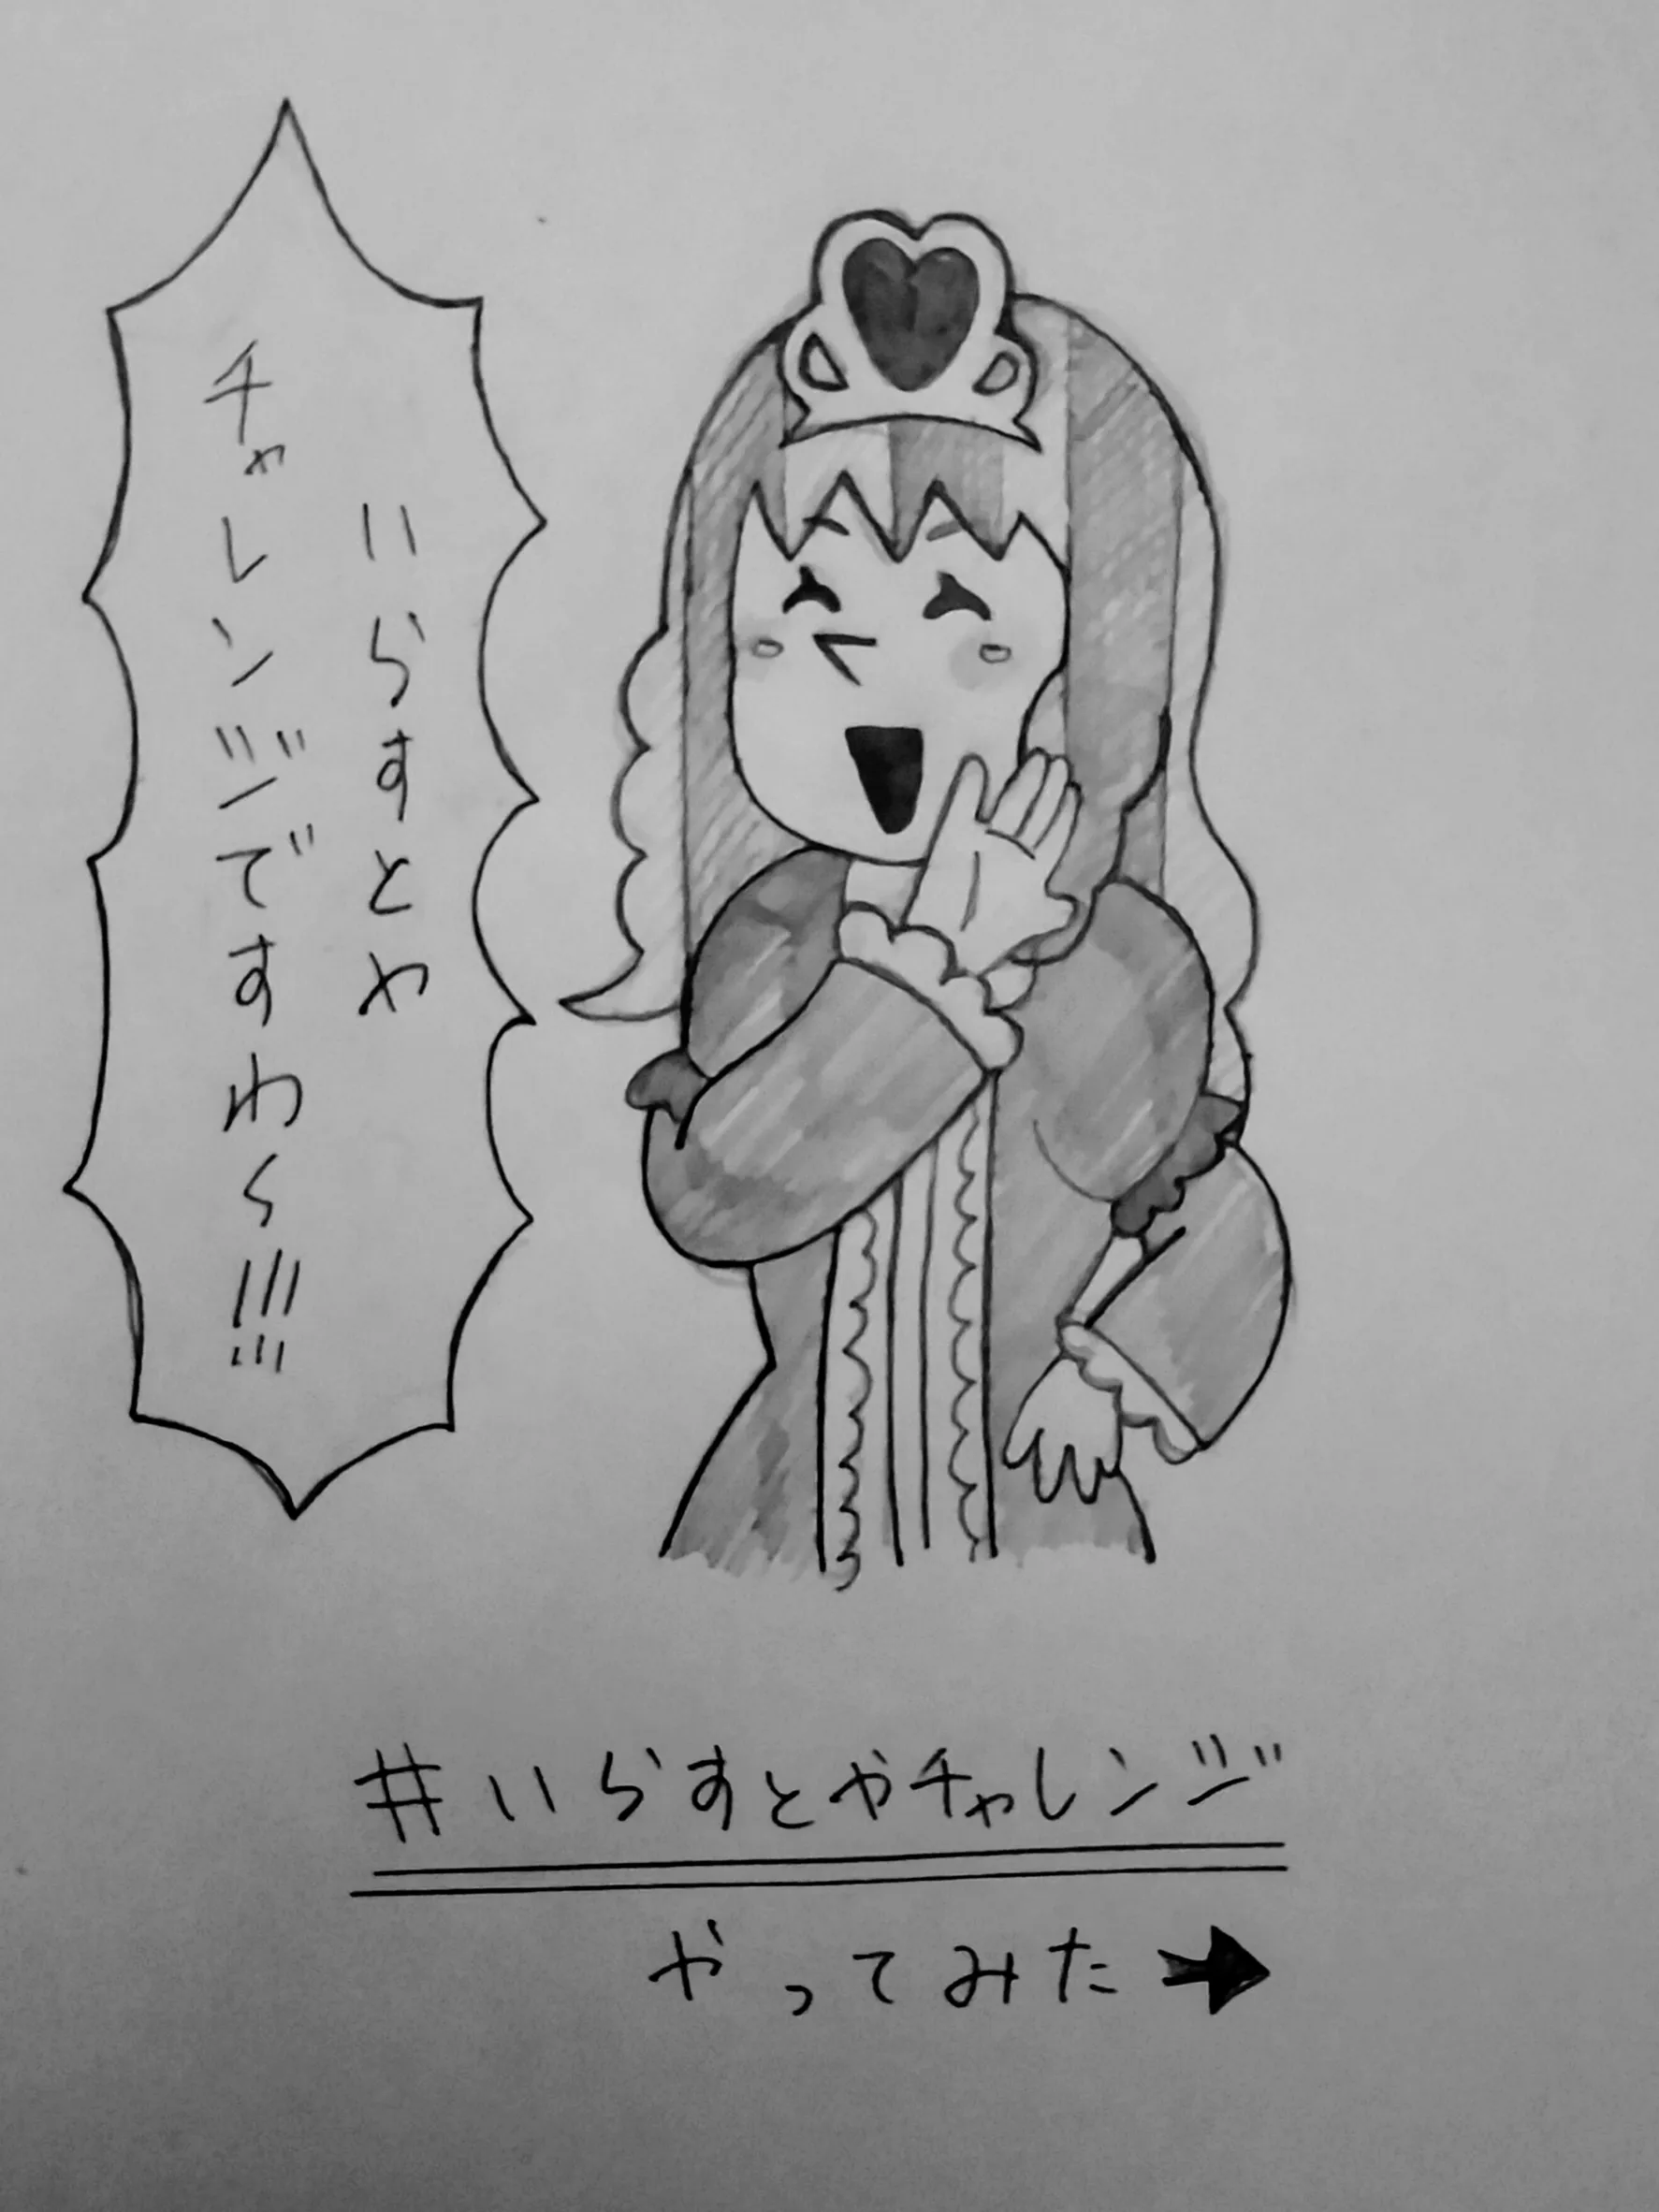 いらすとや
チャレンジですわ〜!!!
#いらすとやチャレンジ
やってみた→